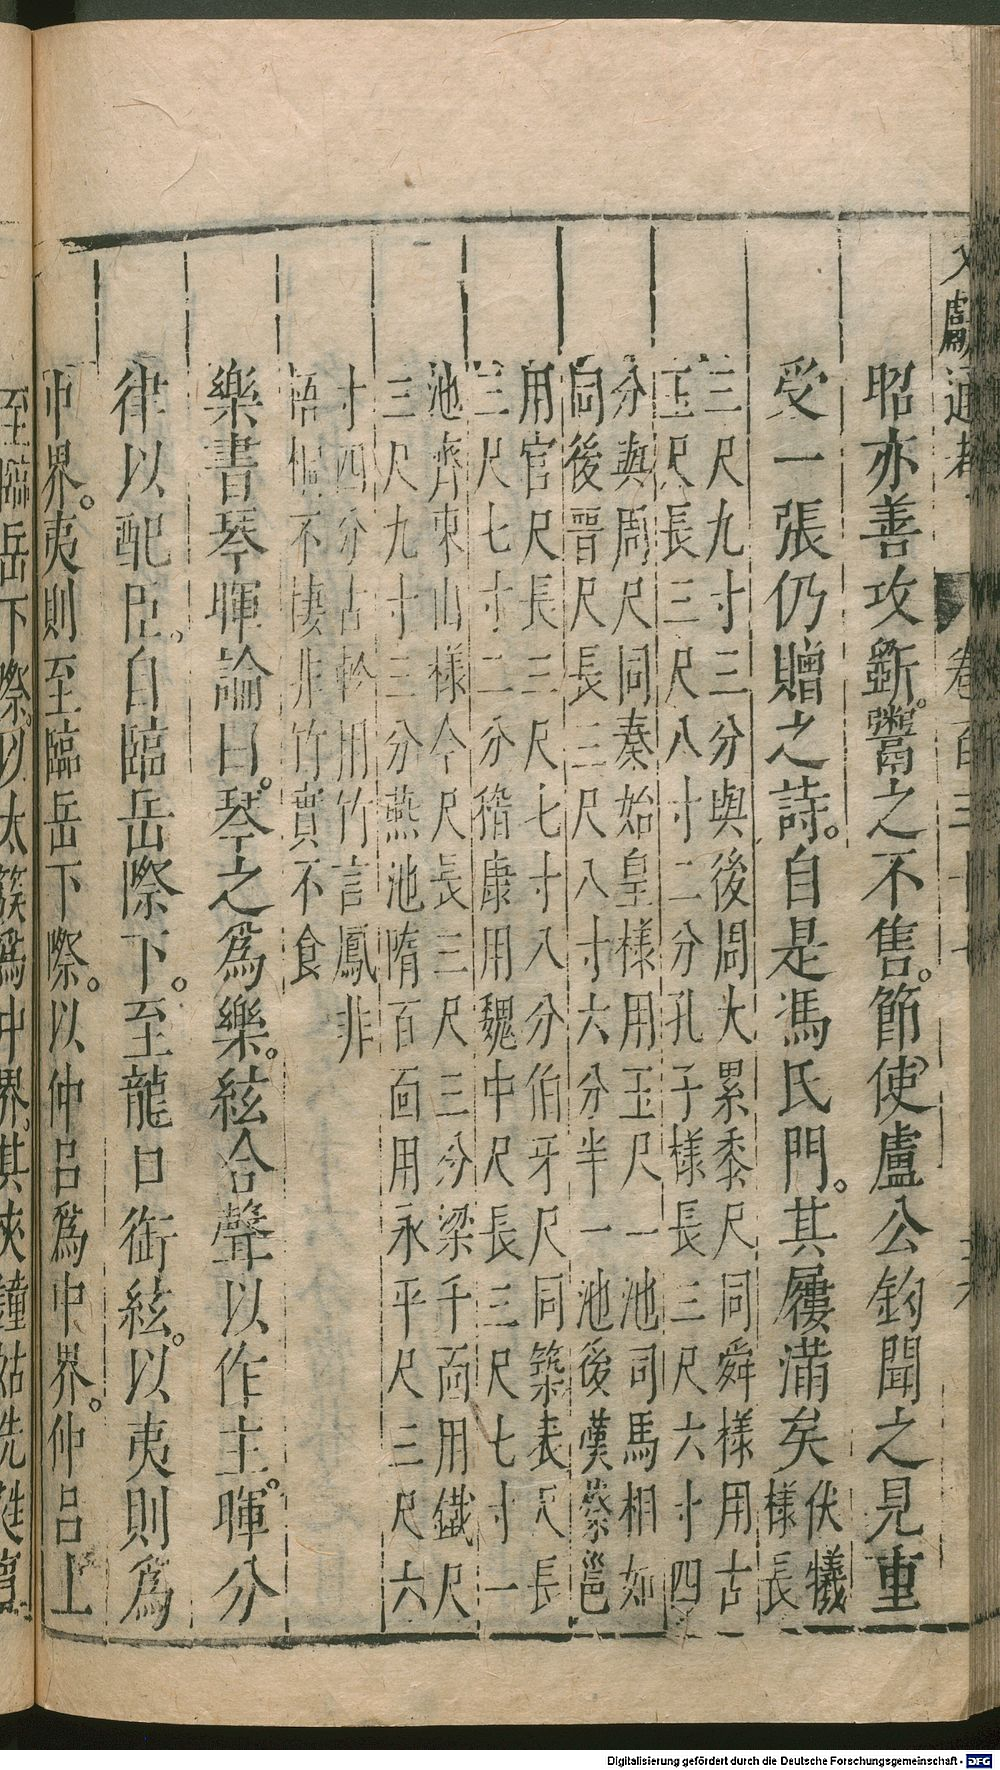 文獻通考　卷百三十七
昭亦善攻斵。鬻之不售。節使盧公鈞聞之見重
受一張仍贈之詩。自是馮氏門。其屨滿矣
伏犧
樣長
三尺九寸三分與後周大累黍尺同舜樣用古
玉尺長三尺八寸二分孔子樣長三尺六寸四
分與周尺同秦始皇樣用玉尺一池司馬相如
同後晉尺長三尺八寸六分半一池後漢蔡邕
用官尺長三尺七寸八分伯牙尺同築表尺長
三尺七寸二分稽康用魏中尺長三尺七寸一
池齊東山樣今尺長三尺三分梁千面用鐵尺
三尺九寸三分燕池隋百面用永平尺三尺六
寸四分古幹用竹言鳳非
梧桐不棲非竹實不食
樂書琴暉論曰。琴之爲樂。絃合聲以作主。暉分
律以配臣。自臨岳際下。至龍口銜絃。以夷則爲
中界。夷則至臨岳下際。以仲呂爲中界。仲呂上
至臨岳下際。以太簇爲中界。其夾鐘姑洗蕤賓
Digitalisierung gefördert durch die Deutsche Forschungsgemeinschaft - DFG